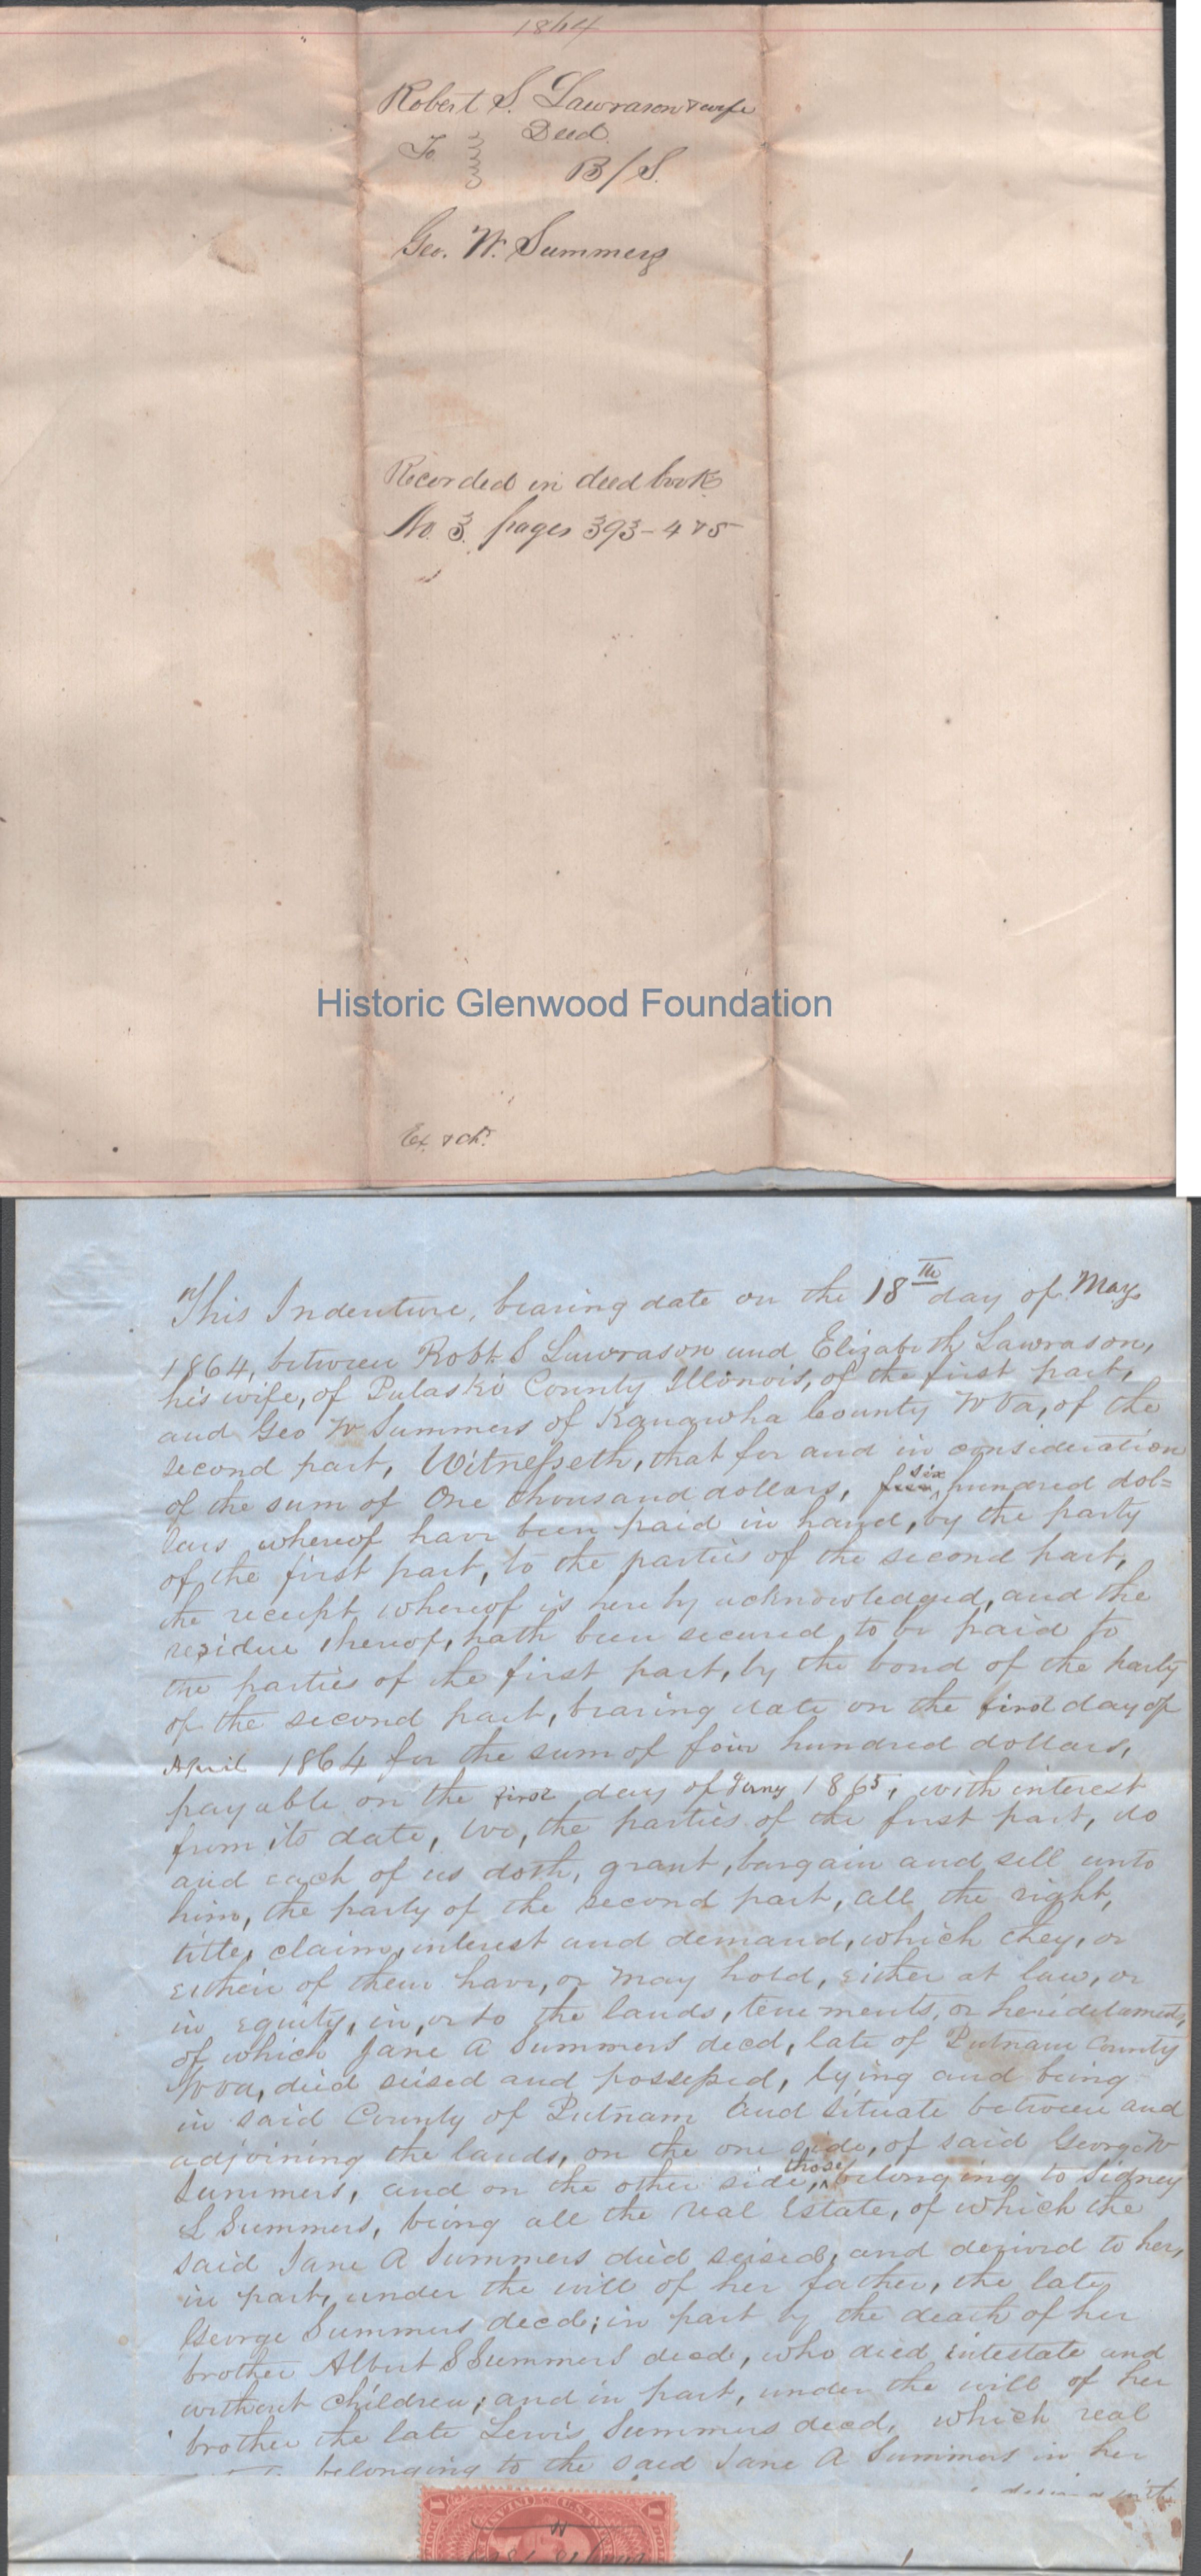 1864
Robert S. Lawrason & wife
To Deed
B/S.
Geo. W. Summers
Recorded in deed book
No. 3. pages 393-475
Historic Glenwood Foundation
Ex. & ch.
This Indenture, bearing date on the 18th day of May
1864, between Robt. S Lawrason and Elizabeth Lawrason,
his wife, of Pulaski County Illinois, of the first part,
and Geo W Summers of Kanawha County W Va, of the
second part, Witnesseth, that for and in consideration
of the sum of One thousand dollars, six hundred dol=
lars whereof have been paid in hand, by the party
of the first part, to the parties of the second part,
the receipt whereof is hereby acknowledged, and the
residue thereof, hath been secured to be paid to
the parties of the first part, by the bond of the party
of the second part, bearing date on the first day of
April 1864 for the sum of four hundred dollars,
payable on the first day of Jany 1865, with interest
from its date, We, the parties of the first part, do
and each of us doth, grant, bargain and sell unto
him, the party of the second part, all the right,
title, claim, interest and demand, which they, or
either of them have, or may hold, either at law, or
in equity, in, or to the lands, tenements, or hereditaments,
of which Jane A Summers decd, late of Putnam County
W Va, died seised and possessed, lying and being
in said County of Putnam and situate between and
adjoining the lands, on the one side, of said George W
Summers, and on the other side, those belonging to Sidney
L Summers, being all the real Estate, of which the
said Jane A Summers died seised, and derived to her,
in part, under the will of her father, the late
George Summers decd; in part by the death of her
brother Albert S Summers decd, who died intestate and
without children; and in part, under the will of her
brother the late Lewis Summers decd, which real
belonging to the said Jane A Summers in her